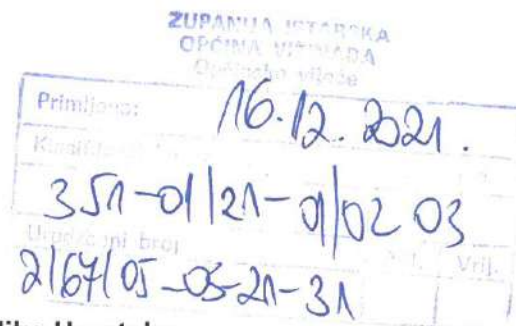 ŽUPANIJA ISTARSKA
OPĆINA VIŽINADA
Općinsko vijeće
Primljeno:
16.12.2021.
351-01/21-01/02 03
Urudžbeni broj
Vrij.
2167/05-05-21-31